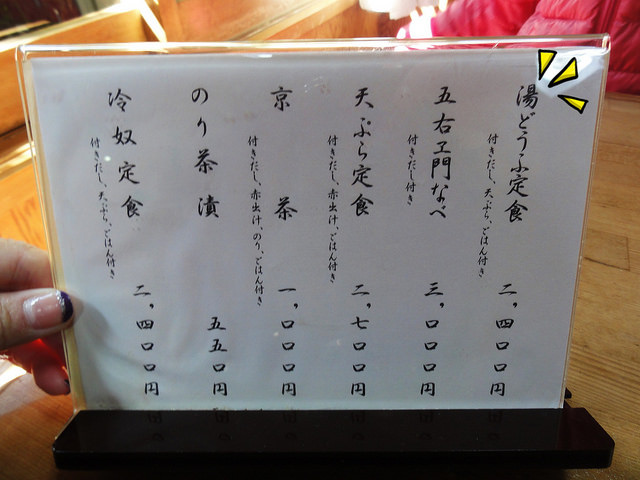 湯どうふ定食 二,四〇〇円
付きだし、天ぷら、ごはん付き
五右ヱ門なべ 三,〇〇〇円
付きだし付き
天ぷら定食 二,七〇〇円
付きだし、赤出汁、ごはん付き
京 茶 一,〇〇〇円
付きだし、赤出汁、のり、ごはん付き
のり茶漬 五五〇円
冷奴定食 二,四〇〇円
付きだし、天ぷら、ごはん付き